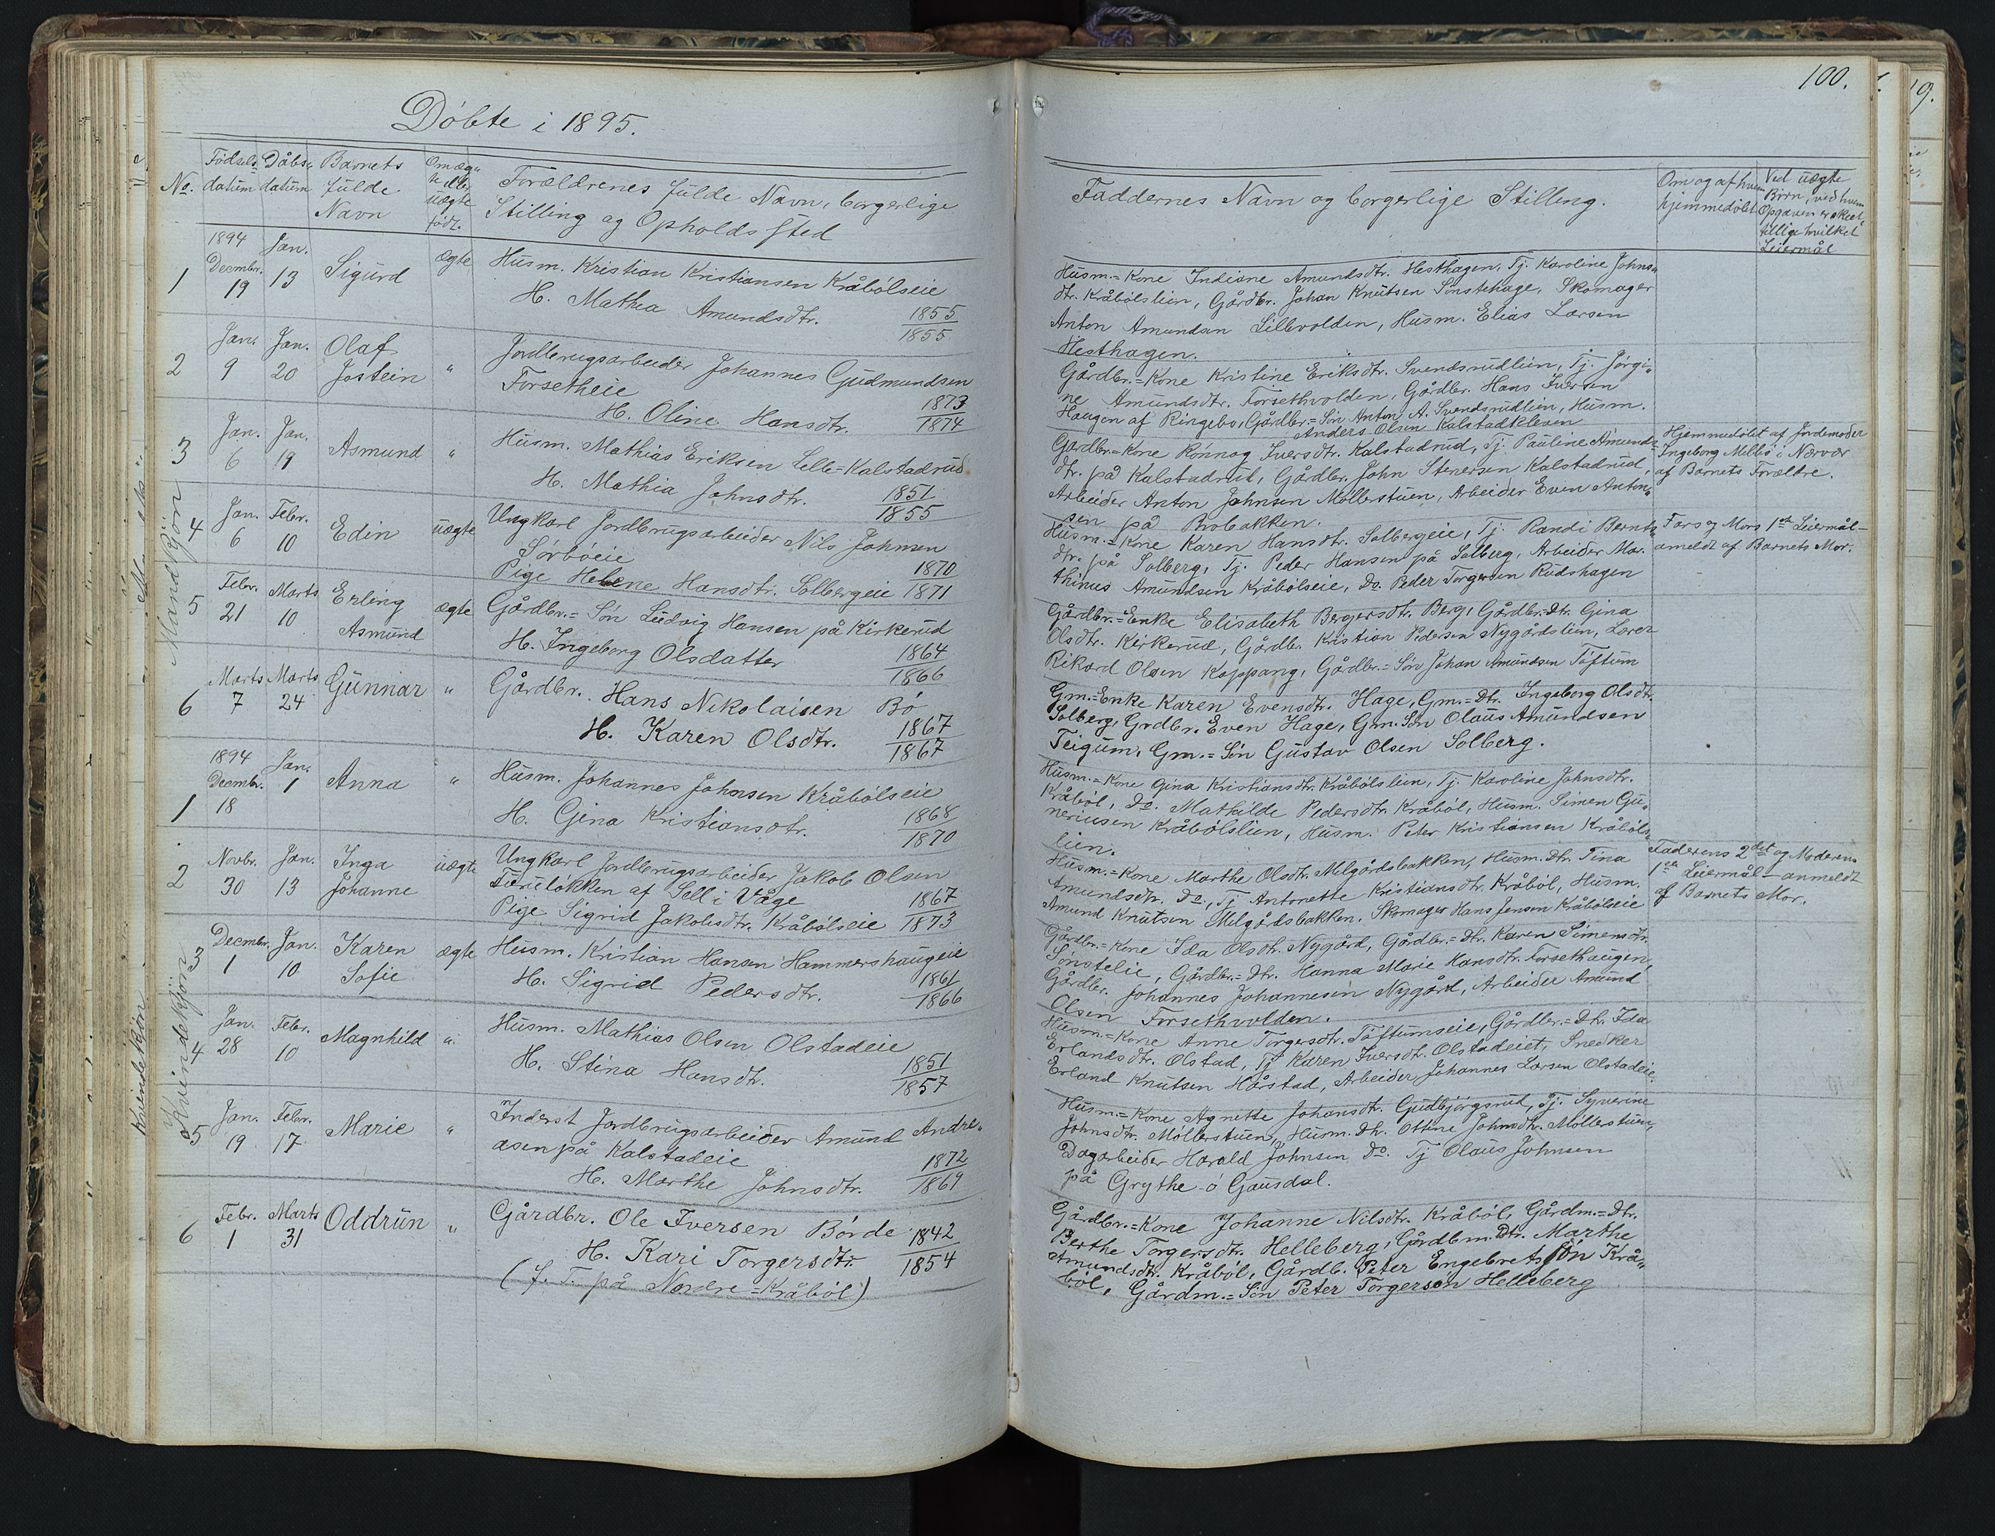 Døbte i 1895.
No.
Fødsels-
datum
Dåbs-
datum
Barnets
fulde
Navn
Om æg-
te eller
uægte
født.
Forældrenes fulde Navn, borgerlige
Stilling og Opholdssted
Mandkjøn
1
1894
Decmbr.
19
Jan.
13
Sigurd
ægte
Husm. Kristian Kristiansen Kråbølseie
H. Mathea Amundsdtr.
1855
1855
2
Jan.
9
Jan.
20
Olaf
Jostein
"
Jordbrugsarbeider Johannes Gudmundsen
Forsetheie
1873
H. Oline Hansdtr.
1874
3
Jan.
6
Jan.
19
Asmund
"
Husm. Mathias Eriksen Lille=Kalstadrud
H. Mathia Johnsdtr.
1851
1855
4
Jan.
6
Febr.
10
Edin
uægte
Ungkarl Jordbrugsarbeider Nils Johnsen
Sørbøeie
1870
Pige Helene Hansdtr. Solbergeie 1871
5
Febr.
21
Marts
10
Erling
Asmund
ægte
Gårdbr.=Søn Ludvig Hansen på Kirkerud
H. Ingeborg Olsdatter
1864
1866
6
Marts
7
Marts
24
Gunnar
"
Gårdbr. Hans Nikolaisen Bø
H. Karen Olsdtr.
1867
1867
Kvindekjøn
1
1894
Decmbr.
18
Jan.
1
Anna
"
Husm. Johannes Johnsen Kråbølseie
H. Gina Kristiansdtr.
1868
1870
2
Novbr.
30
Jan.
13
Inga
Johanne
uægte
Ungkarl Jordbrugsarbeider Jakob Olsen
af Sell i Våge
1867
Pige Sigrid Jakobsdtr. Kråbølseie 1873
3
Decmbr.
1
Jan.
10
Karen
Sofie
ægte
Husm. Kristian Hansen Hammershaugeie
H. Sigrid Pedersdtr.
1861
1866
4
Jan.
28
Febr.
10
Magnhild
"
Husm. Mathias Olsen Olstadeie
H. Stina Hansdtr.
1851
1857
5
Jan.
19
Febr.
17
Marie
"
Inderst Jordbrugsarbeider Amund Andre-
asen på Kalstadeie
1872
H. Marthe Johnsdtr.
1869
6
Febr.
1
Marts
31
Oddrun
"
Gårdbr. Ole Iversen Børde 1842
H. Kari Torgersdtr. 1854
(f. T. på Nordre=Kråbøl)
100.
Faddernes Navn og borgerlige Stilling.
Om og af hvem
hjemmedøbt
Ved uægte
Børn, ved hvem
Opgaven er skeet,
tillige hvilket
Leiermål
Husm.=Kone Indiane Amundsdtr. Hesthagen, Tj. Karoline Johns-
dtr. Kråbølslien, Gårdbr. Johan Knutsen Sønstehage, Skomager
Anton Amundsen Lillevolden, Husm. Elias Larsen
Hesthagen.
Gårdbr.=Kone Kristine Eriksdtr. Svendsrudlien, Tj. Jørgi-
ne Amundsdtr. Forsethvolden, Gårdbr. Hans Iversen
Haugen af Ringebo, Gårdbr.=Søn Anton A. Svendsrudlien, Husm.
Anders Olsen Kalstadkleven
Gårdbr.=Kone Rønnog Iversdtr. Kalstadrud, Tj. Pauline Amunds-
dtr. på Kalstadrud, Gårdbr. John Stenersen Kalstadrud,
Arbeider Anton Johnsen Møllerstuen, Arbeider Even Anton-
sen på Brobakken.
Hjemmedøbt af Jordemoder
Ingeborg Melbø i Nærvær
af Barnets Forældre.
Husm.=Kone Karen Hansdtr. Solbergeie, Tj. Randi Bernts-
dtr. på Solberg, Tj. Peder Hansen på Solberg, Arbeider Mar-
thinus Amundsen Kråbølseie, Do. Peder Torgersen Rudshagen
Fars og Mors 1ste Leiermål-
anmeldt af Barnets Mor.
Gårdbr.=Enke Elisabeth Bergersdtr. Berg, Gårdbr.=Dtr. Gina
Olsdtr. Kirkerud, Gårdbr. Kristian Pedersen Nygårdslien, Lærer
Rikard Olsen Koppang, Gårdbr.=Søn Johan Amundsen Tøftum
Gm.=Enke Karen Evensdtr. Hage, Gm.=Dtr. Ingeborg Olsdtr.
Solberg, Grdbr. Even Hage, Gm. Søn Olaus Amundsen
Teigum, Gm.=Søn Gustav Olsen Solberg.
Husm.=Kone Gina Kristiansdtr. Kråbølslien, Tj. Karoline Johnsdtr.
Kråbøl, Do. Mathilde Pedersdtr. Kråbøl, Husm. Simen Gu-
neriusen Kråbølslien, Husm. Peter Kristiansen Kråbøls-
lien.
Husm.=Kone Marthe Olsdtr. Milgårdsbakken, Husm. Dtr. Tina
Amundsdtr. Do., Tj Antonette Kristiansdtr. Kråbøl, Husm.
Amund Knutsen Milgårdsbakken. Skomager Hans Jensen Kråbølseie
Faderens 2det og Moderens
1ste Leiermål - anmeldt
af Barnets Mor.
Gårdbr.=Kone Ida Olsdtr. Nygård, Gårdbr.=Dtr. Karen Simensdtr.
Sønstelie, Gårdbr.=Dtr. Hanna Marie Hansdtr. Forsethaugen,
Gårdbr. Johannes Johannesen Nygård, Arbeider Amund
Olsen Forsethvolden.
Husm.=Kone Anne Torgersdtr. Tøftumseie, Gårdbr.=Dtr. Ida
Erlandsdtr. Olstad, Tj Karen Iversdtr. Olstadeiet, Snedker
Erland Knutsen Hårstad, Arbeider Johannes Larsen Olstadeie.
Husm.=Kone Agnette Johansdtr. Gudbjørgsrud, Tj. Syverine
Johnsdtr. Møllerstuen, Husm. Dtr. Othne Johnsdtr. Møllerstuen,
Dagarbeider Harald Johnsen Do. Tj Olaus Johnsen
på Grythe Ø Gausdal.
Gårdbr.=Kone Johanne Nilsdtr. Kråbøl, Gårdm.=Dtr.
Berthe Torgersdtr. Helleberg, Gårdbm. Dtr. Marthe
Amundsdtr. Kråbøl, Gårdb. Peter Engebretssøn Krå-
bøl, Gårdm.=Søn Peter Torgersen Helleberg